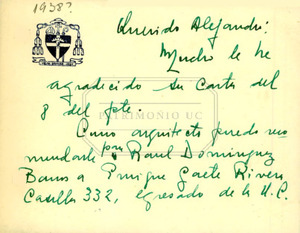 1958?
Querido Alejandro:
Mucho le he
agradecido su carta del
8 del pte.
PATRIMONIO UC
Como arquitecto puedo reco
mendarle
para Raul Dominguez
Banos a Enrique Gaete Rivera
Casilla 332, egresado de la U.C.